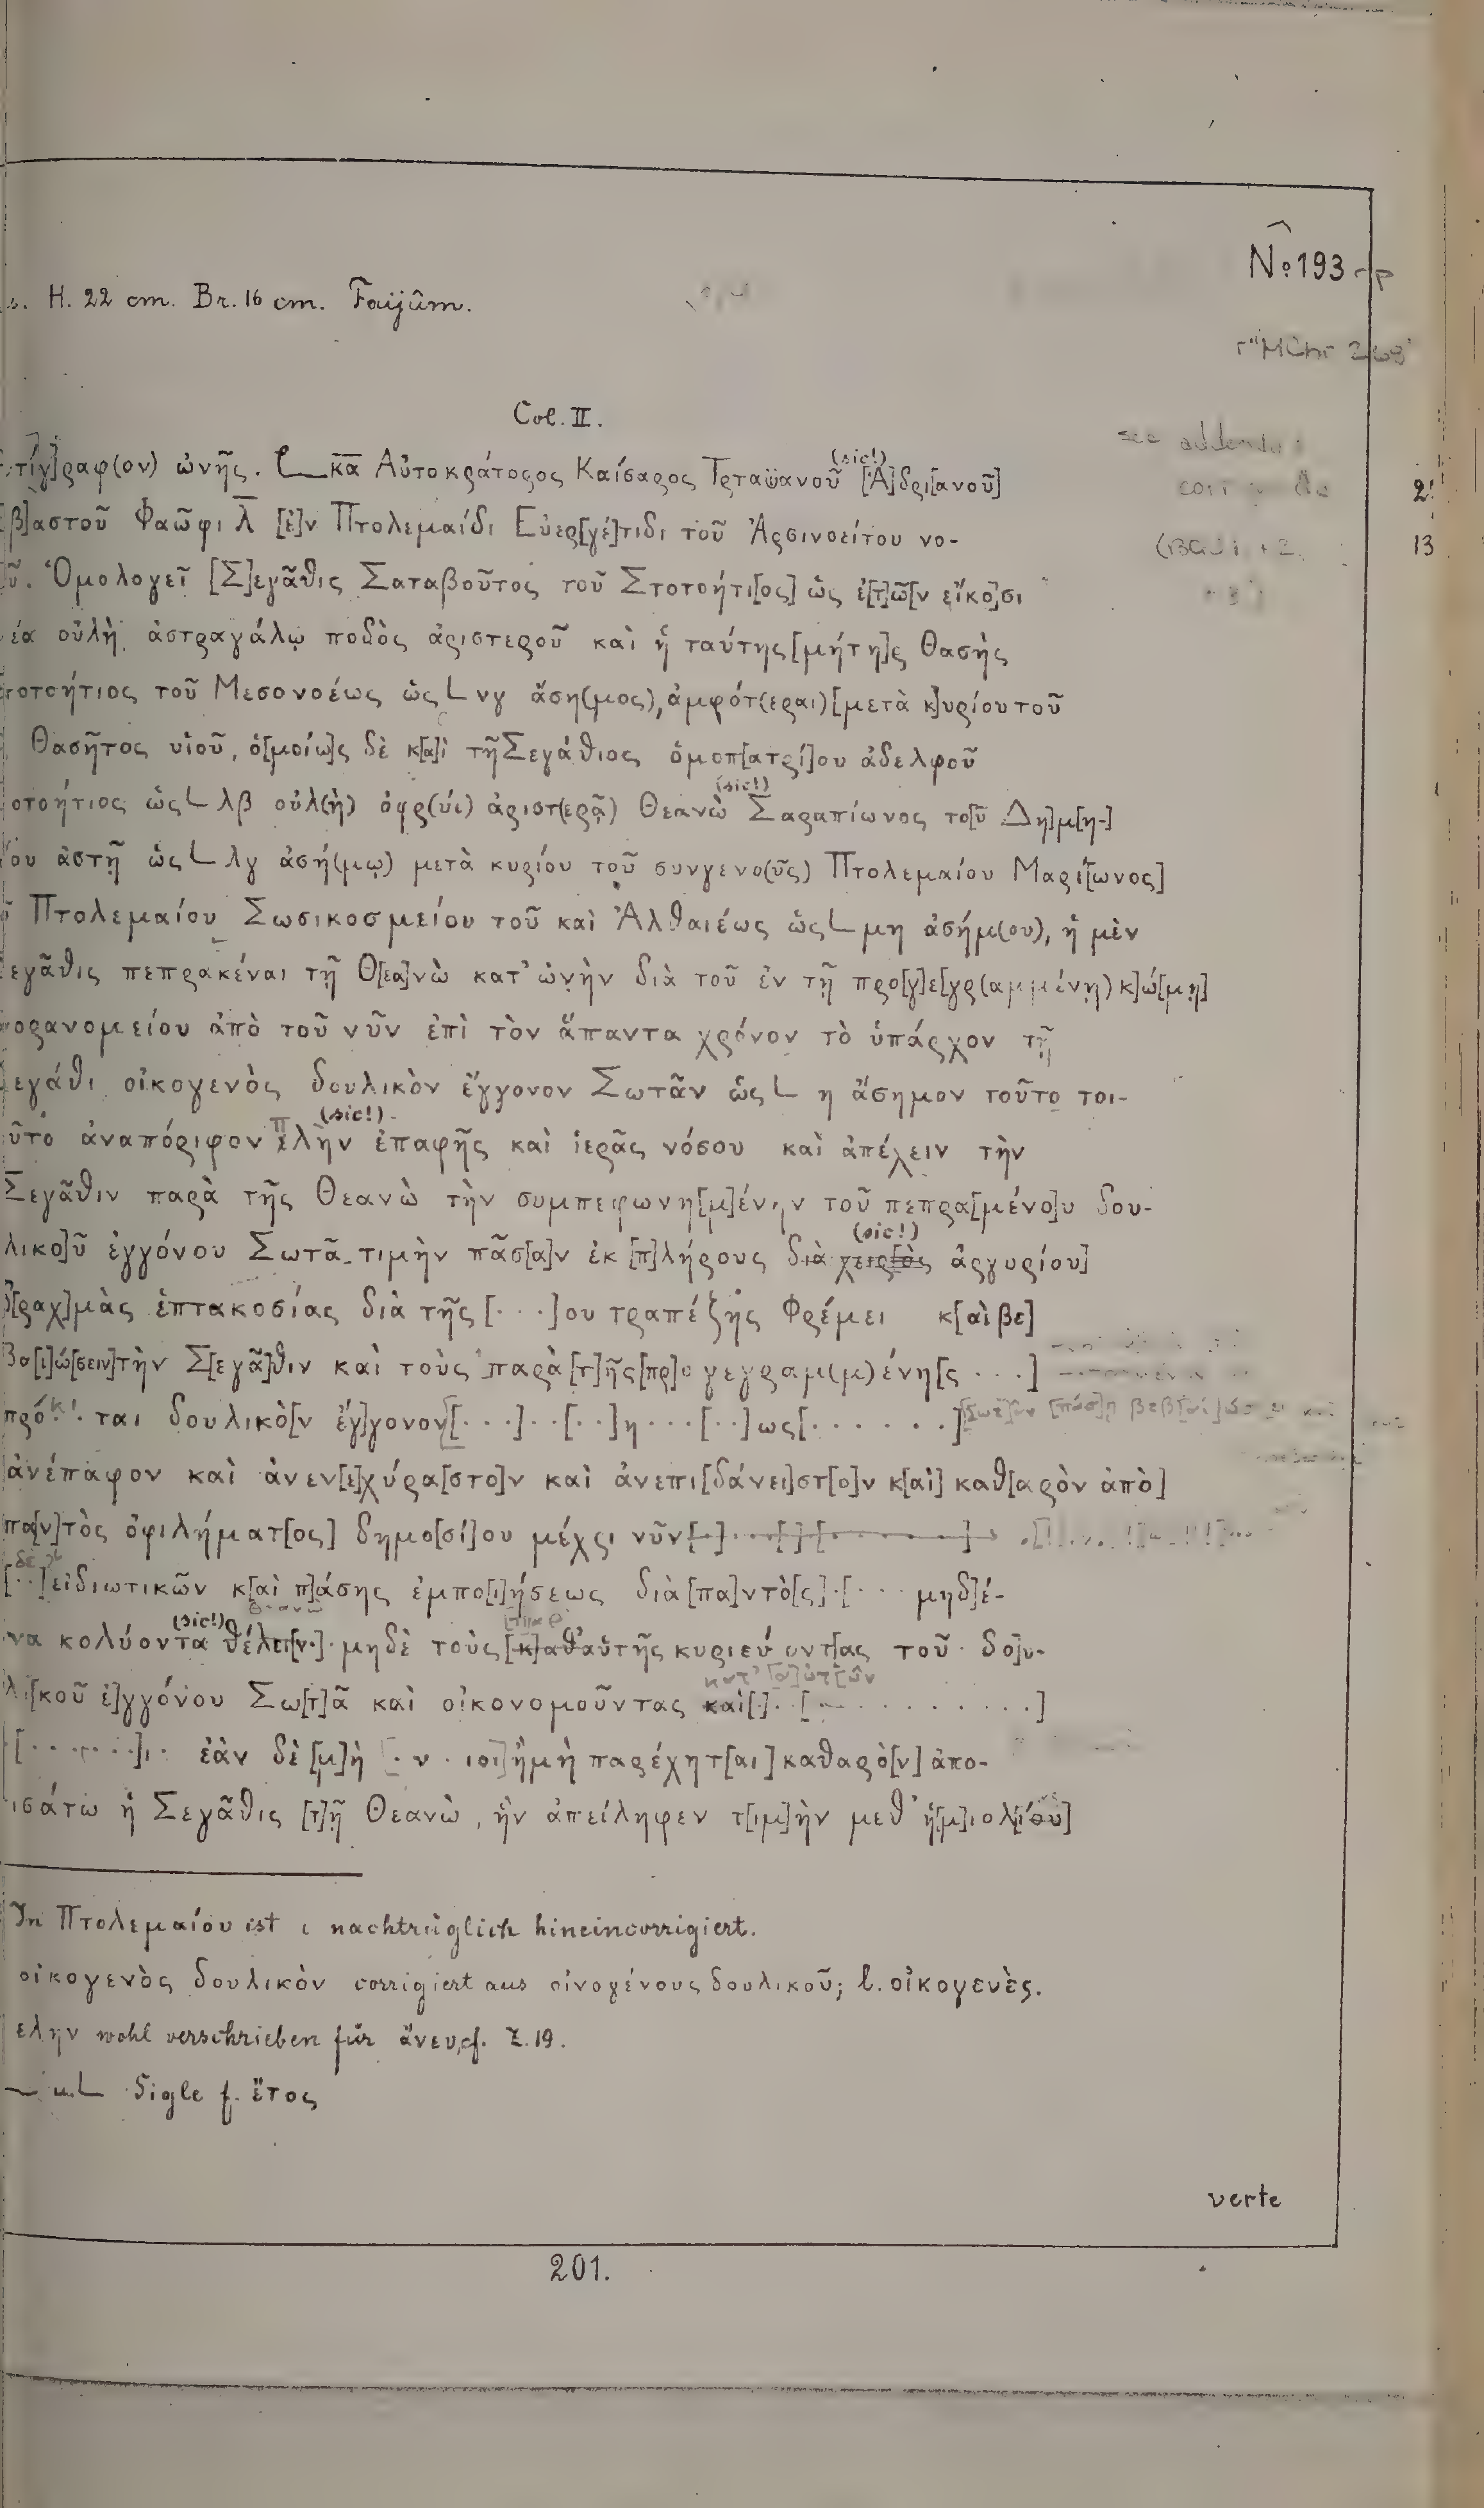 № 193
H. 22 cm. Br. 16 cm. Faijûm.
Col. II.
τίγ]ραφ(ον) ὠνῆς. κ̅α̅ Αὐτοκράτορος Καίσαρος Τρταϊανοῦ (sic!) [Ἁ]δρι[ανοῦ]
β]αστοῦ Φαῶφι λ̅ [ἐ]ν Πτολεμαίδι Εὐερ[γέ]τιδι τοῦ Ἀρσινοείτου νο-
ῦ. Ὁμολογεῖ [Σ]εγᾶθις Σαταβοῦτος τοῦ Στοτοήτι[ος] ὡς ἐ[τ]ῶ[ν εἴκο]σι
έα οὐλὴ ἀστραγάλῳ ποδὸς ἀριστεροῦ καὶ ἡ ταύτης [μήτη]ρ Θασῆς
τοτοήτιος τοῦ Μεσονοέως ὡς L νγ ἄση(μος), ἀμφότ(εραι) [μετὰ κ]υρίου τοῦ
Θασῆτος υἱοῦ, ὁ[μοίω]ς δὲ κ[α]ὶ τῆ Σεγάθιος ὁμοπ[ατρί]ου ἀδελφοῦ
οτοήτιος ὡς L λβ οὐλ(ὴ) ὀφρ(ύι) ἀριστ(ερᾷ) Θεανὼ (sic!) Σαραπίωνος το[ῦ Δη]μ[η-]
ου ἀστῇ ὡς L λγ ἀσή(μῳ) μετὰ κυρίου τοῦ συνγενο(ῦς) Πτολεμαίου Μαρί[ωνος]
Πτολεμαίου Σωσικοσμείου τοῦ καὶ Ἀλθαιέως ὡς L μη ἀσήμ(ου), ἡ μὲν
εγᾶθις πεπρακέναι τῇ Θ[εα]νὼ κατ' ὠνὴν διὰ τοῦ ἐν τῇ προ[γ]ε[γρ(αμμένῃ) κ]ώ[μῃ]
ορανομείου ἀπὸ τοῦ νῦν ἐπὶ τὸν ἅπαντα χρόνον τὸ ὑπάρχον τῇ
εγάθι οἰκογενὸς δουλικὸν ἔγγονον Σωτᾶν ὡς L η ἄσημον τοῦτο τοι-
ῦτο ἀναπόριφον ἑλὴν (sic!) ἐπαφῆς καὶ ἱερᾶς νόσου καὶ ἀπέχειν τὴν
Σεγᾶθιν παρὰ τῆς Θεανὼ τὴν συμπεφωνη[μ]ένην τοῦ πεπρα[μένο]υ δου-
λικο]ῦ ἐγγόνου Σωτᾶ τιμὴν πᾶσ[α]ν ἐκ [π]λήρους διὰ χειρ[ὸ]ς (sic!) ἀργυρίου]
δ[ραχ]μὰς ἑπτακοσίας διὰ τῆς [· · ·]ου τραπέζης Φρέμει κ[αὶ βε]
βα[ι]ώ[σειν] τὴν Σ[εγᾶ]θιν καὶ τοὺς παρὰ [τ]ῆς [πρ]ογεγραμ(μ)ένη[ς · · ·]
πρό· · ται δουλικὸ[ν ἔγ]γονον[· · ·]· ·[· ·]η· · ·[· ·]ως[· · · · · ·]
ἀνέπαφον καὶ ἀνεν[ε]χύρα[στο]ν καὶ ἀνεπι[δάνει]στ[ο]ν κ[αὶ] καθ[αρὸν ἀπὸ]
πα[ν]τὸς ὀφιλήματ[ος] δημο[σί]ου μέχρι νῦν
[· ·]εἰδιωτικῶν κ[αὶ π]άσης ἐμπο[ι]ήσεως διὰ [πα]ντὸ[ς] · [· · · μηδ]έ-
να κολύοντα (sic!) θέλει[ν·]· μηδὲ τοὺς [κ]αθ' αὑτῆς κυριεύοντ[ας τοῦ δο]υ-
λι[κοῦ ἐ]γγόνου Σω[τ]ᾶ καὶ οἰκονομοῦντας καὶ[·]· · [· · · · · · · · ·]
[· · · · · · ·]ι· ἐὰν δὲ [μ]ὴ · ν · ιοι] ἢ μὴ παρέχητ[αι] καθαρὸ[ν] ἀπο-
ισάτω ἡ Σεγᾶθις [τ]ῇ Θεανὼ, ἣν ἀπείληφεν τ[ιμ]ὴν μεθ' ἡ[μ]ιολ[ίου]
In Πτολεμαίου ist ι nachträglich hineincorrigiert.
οἰκογενὸς δουλικὸν corrigiert aus οἰνογένους δουλικοῦ; l. οἰκογενὲς.
ελην wohl verschrieben für ἄνευ, cf. Z. 19.
u. L Sigle f. ἔτος
verte
201.